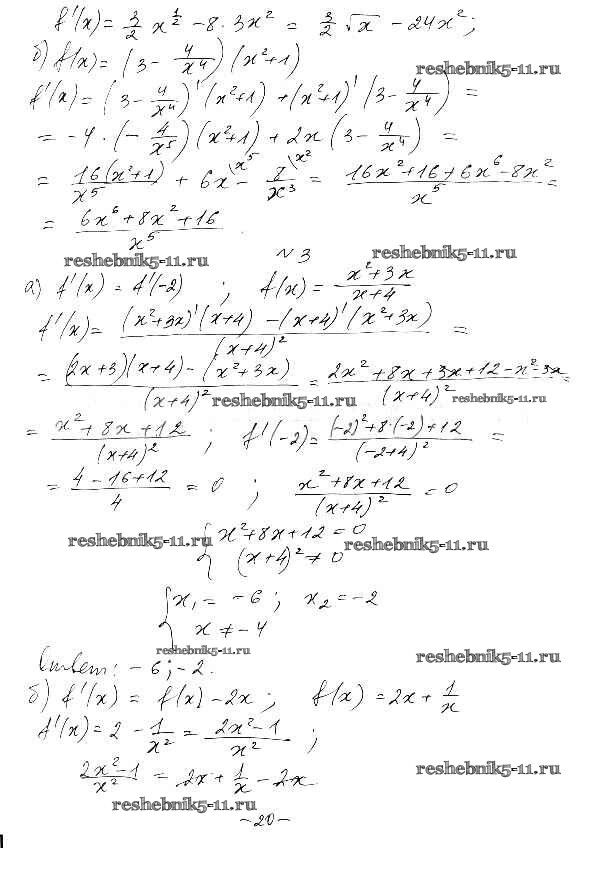 f'(x) = 3/2 x^(1/2) − 8·3x² = 3/2 √x − 24x²;
б) f(x) = (3 − 4/x⁴)(x²+1)
reshebnik5-11.ru
f'(x) = (3 − 4/x⁴)'(x²+1) + (x²+1)'(3 − 4/x⁴) =
= −4·(−4/x⁵)(x²+1) + 2x(3 − 4/x⁴) =
= 16(x²+1)/x⁵ + 6x\x⁵ − 8/x³\x² = (16x²+16+6x⁶−8x²)/x⁵ =
= (6x⁶+8x²+16)/x⁵
reshebnik5-11.ru
N 3
reshebnik5-11.ru
а) f'(x) = f'(−2) ; f(x) = (x²+3x)/(x+4)
f'(x) = ((x²+3x)'(x+4) − (x+4)'(x²+3x))/(x+4)² =
= ((2x+3)(x+4) − (x²+3x))/(x+4)² = (2x²+8x+3x+12−x²−3x)/(x+4)² =
reshebnik5-11.ru reshebnik5-11.ru
= (x²+8x+12)/(x+4)² ; f'(−2) = ((−2)²+8·(−2)+12)/(−2+4)² =
= (4−16+12)/4 = 0 ; (x²+8x+12)/(x+4)² = 0
{ x²+8x+12 = 0
reshebnik5-11.ru reshebnik5-11.ru
(x+4)² ≠ 0
{ x₁ = −6 ; x₂ = −2
x ≠ −4
reshebnik5-11.ru
Ответ: −6; −2.
reshebnik5-11.ru
б) f'(x) = f(x) − 2x ; f(x) = 2x + 1/x
f'(x) = 2 − 1/x² = (2x²−1)/x² ;
(2x²−1)/x² = 2x + 1/x − 2x
reshebnik5-11.ru
reshebnik5-11.ru
−20−